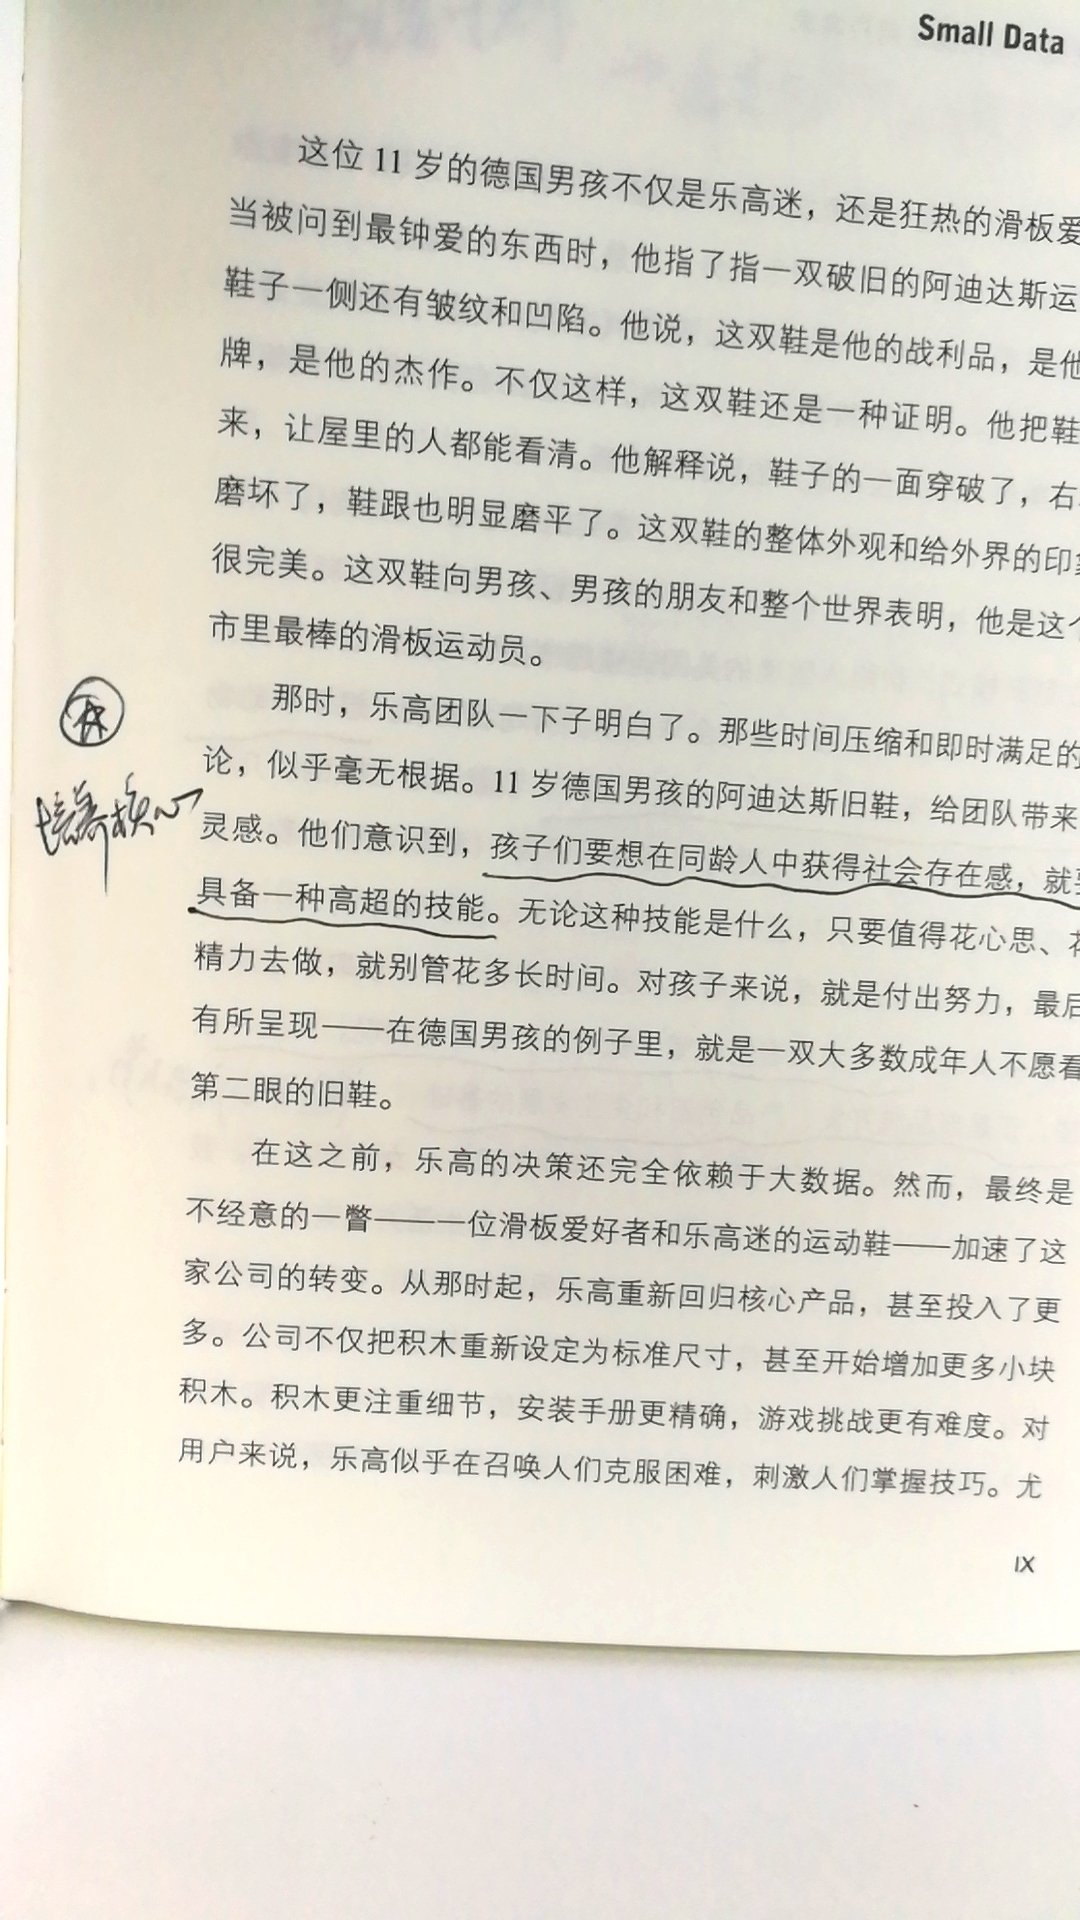 Small Data
这位 11 岁的德国男孩不仅是乐高迷，还是狂热的滑板爱
当被问到最钟爱的东西时，他指了指一双破旧的阿迪达斯运
鞋子一侧还有皱纹和凹陷。他说，这双鞋是他的战利品，是他
牌，是他的杰作。不仅这样，这双鞋还是一种证明。他把鞋
来，让屋里的人都能看清。他解释说，鞋子的一面穿破了，右
磨坏了，鞋跟也明显磨平了。这双鞋的整体外观和给外界的印象
很完美。这双鞋向男孩、男孩的朋友和整个世界表明，他是这个
市里最棒的滑板运动员。
那时，乐高团队一下子明白了。那些时间压缩和即时满足的
论，似乎毫无根据。11 岁德国男孩的阿迪达斯旧鞋，给团队带来
培养核心
灵感。他们意识到，孩子们要想在同龄人中获得社会存在感，就要
具备一种高超的技能。无论这种技能是什么，只要值得花心思、花
精力去做，就别管花多长时间。对孩子来说，就是付出努力，最后
有所呈现——在德国男孩的例子里，就是一双大多数成年人不愿看
第二眼的旧鞋。
在这之前，乐高的决策还完全依赖于大数据。然而，最终是
不经意的一瞥——一位滑板爱好者和乐高迷的运动鞋——加速了这
家公司的转变。从那时起，乐高重新回归核心产品，甚至投入了更
多。公司不仅把积木重新设定为标准尺寸，甚至开始增加更多小块
积木。积木更注重细节，安装手册更精确，游戏挑战更有难度。对
用户来说，乐高似乎在召唤人们克服困难，刺激人们掌握技巧。尤
IX